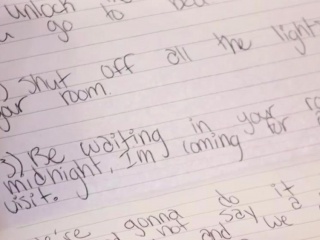 unlock
u go to bed
) Shut off all the light
your room.
3) Be waiting in your ro
midnight. I'm coming for a
visit.
we're gonna do it
not say
and we